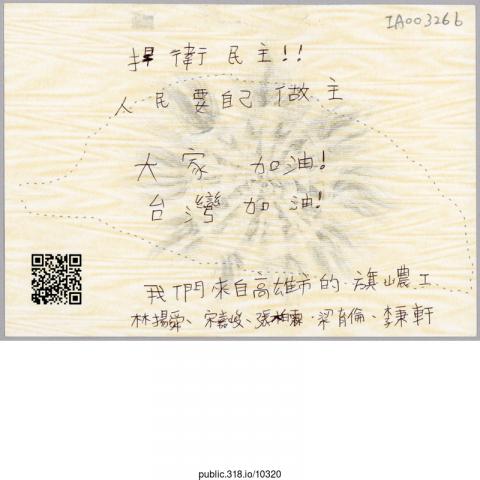 IA003266
捍衛民主!!
人民要自己做主
大家 加油!
台灣 加油!
我們來自高雄市的旗山農工
林揚舜、宋嘉峻、張霖、梁育倫、李秉軒
public.318.io/10320